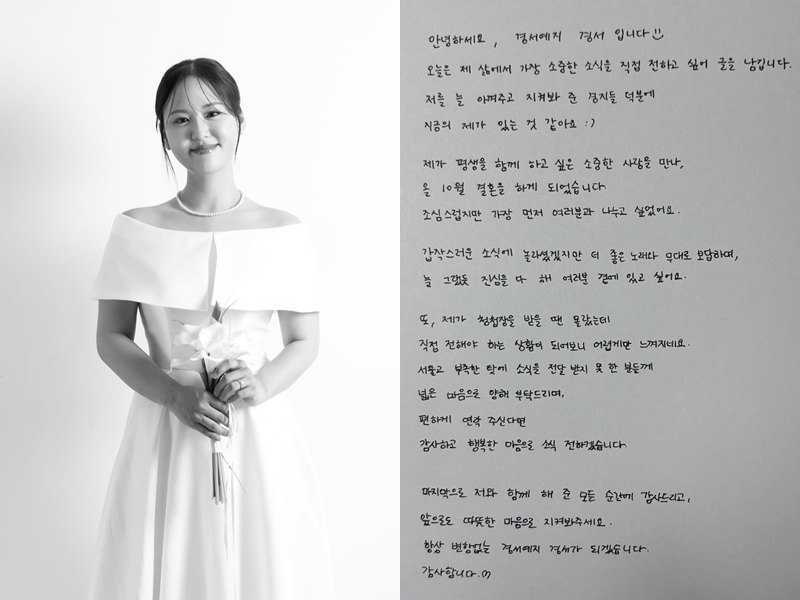 안녕하세요, 경서예지 경서 입니다 :)
오늘은 제 삶에서 가장 소중한 소식을 직접 전하고 싶어 글을 남깁니다.
저를 늘 아껴주고 지켜봐 준 경지들 덕분에
지금의 제가 있는 것 같아요 :)
제가 평생을 함께 하고 싶은 소중한 사람을 만나,
올 10월 결혼을 하게 되었습니다.
조심스럽지만 가장 먼저 여러분과 나누고 싶었어요.
갑작스러운 소식에 놀라셨겠지만 더 좋은 노래와 무대로 보답하며,
늘 그랬듯 진심을 다 해 여러분 곁에 있고 싶어요.
또, 제가 청첩장을 받을 땐 몰랐는데
직접 전해야 하는 상황이 되어보니 어렵게만 느껴지네요.
서툴고 부족한 탓에 소식을 전달 받지 못 한 분들께
넓은 마음으로 양해 부탁드리며,
편하게 연락 주신다면
감사하고 행복한 마음으로 소식 전하겠습니다.
마지막으로 저와 함께 해 준 모든 순간에 감사드리고,
앞으로도 따뜻한 마음으로 지켜봐주세요.
항상 변함없는 경서예지 경서가 되겠습니다.
감사합니다.